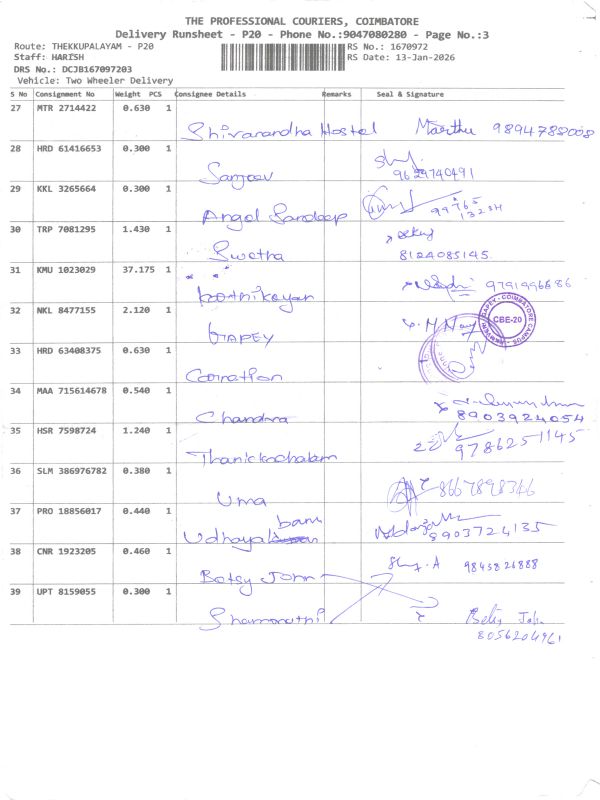 THE PROFESSIONAL COURIERS, COIMBATORE
Delivery Runsheet - P20 - Phone No.:9047080280 - Page No.:3
Route: THEKKUPALAYAM - P20 RS No.: 1670972
Staff: HARISH RS Date: 13-Jan-2026
DRS No.: DCJB167097203
Vehicle: Two Wheeler Delivery
S No Consignment No Weight PCS Consignee Details Remarks Seal & Signature
27 MTR 2714422 0.630 1
Shivanandha Hostel 9894788008
28 HRD 61416653 0.300 1
Sanjeev 9629740491
29 KKL 3265664 0.300 1
Angel Sandeep
30 TRP 7081295 1.430 1
Swetha 8124085145
31 KMU 1023029 37.175 1
Karthikeyan 9791996686
32 NKL 8477155 2.120 1
GAPEY CBE-20
33 HRD 63408375 0.630 1
34 MAA 715614678 0.540 1
Chandra 8903924054
35 HSR 7598724 1.240 1
9786251145
36 SLM 386976782 0.380 1
Uma 8667898346
37 PRO 18856017 0.440 1
Udhaya banu 8903724135
38 CNR 1923205 0.460 1
Betsy John 9845826888
39 UPT 8159055 0.300 1
8056204961